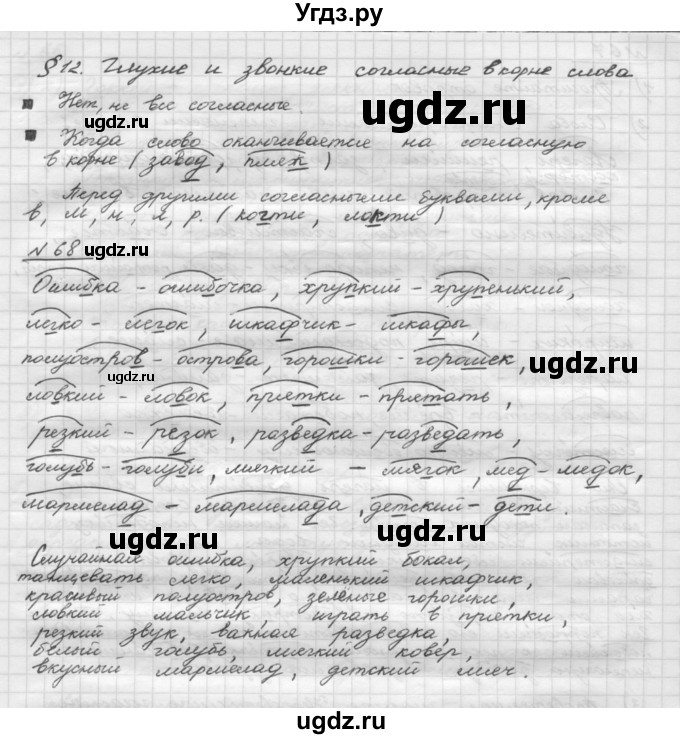 Угдз.ру
§ 12. Глухие и звонкие согласные в корне слова
Нет, не все согласные.
ugdz.ru
Когда слово оканчивается на согласную
в корне (завод, пляж)
Перед другими согласными буквами, кроме
в, м, н, л, р. (когти, локти)
№ 68 ugdz.ru
Ошибка - ошибочка, хрупкий - хрупенький,
легко - легок, шкафчик - шкафы,
полуостров - острова, горошки - горошек,
ugdz.ru ugdz.ru
ловкий - ловок, прятки - прятать,
резкий - резок, разведка - разведать,
голубь - голуби, мягкий - мягок, мед - медок,
мармелад - мармелада, детский - дети.
ugdz.ru ugdz.ru
Случайная ошибка, хрупкий бокал,
танцевать легко, маленький шкафчик,
красивый полуостров, зеленые горошки,
ловкий мальчик, играть в прятки,
резкий звук, важная разведка,
белый голубь, мягкий ковер,
вкусный мармелад, детский мяч.
ugdz.ru ugdz.ru
ugdz.ru